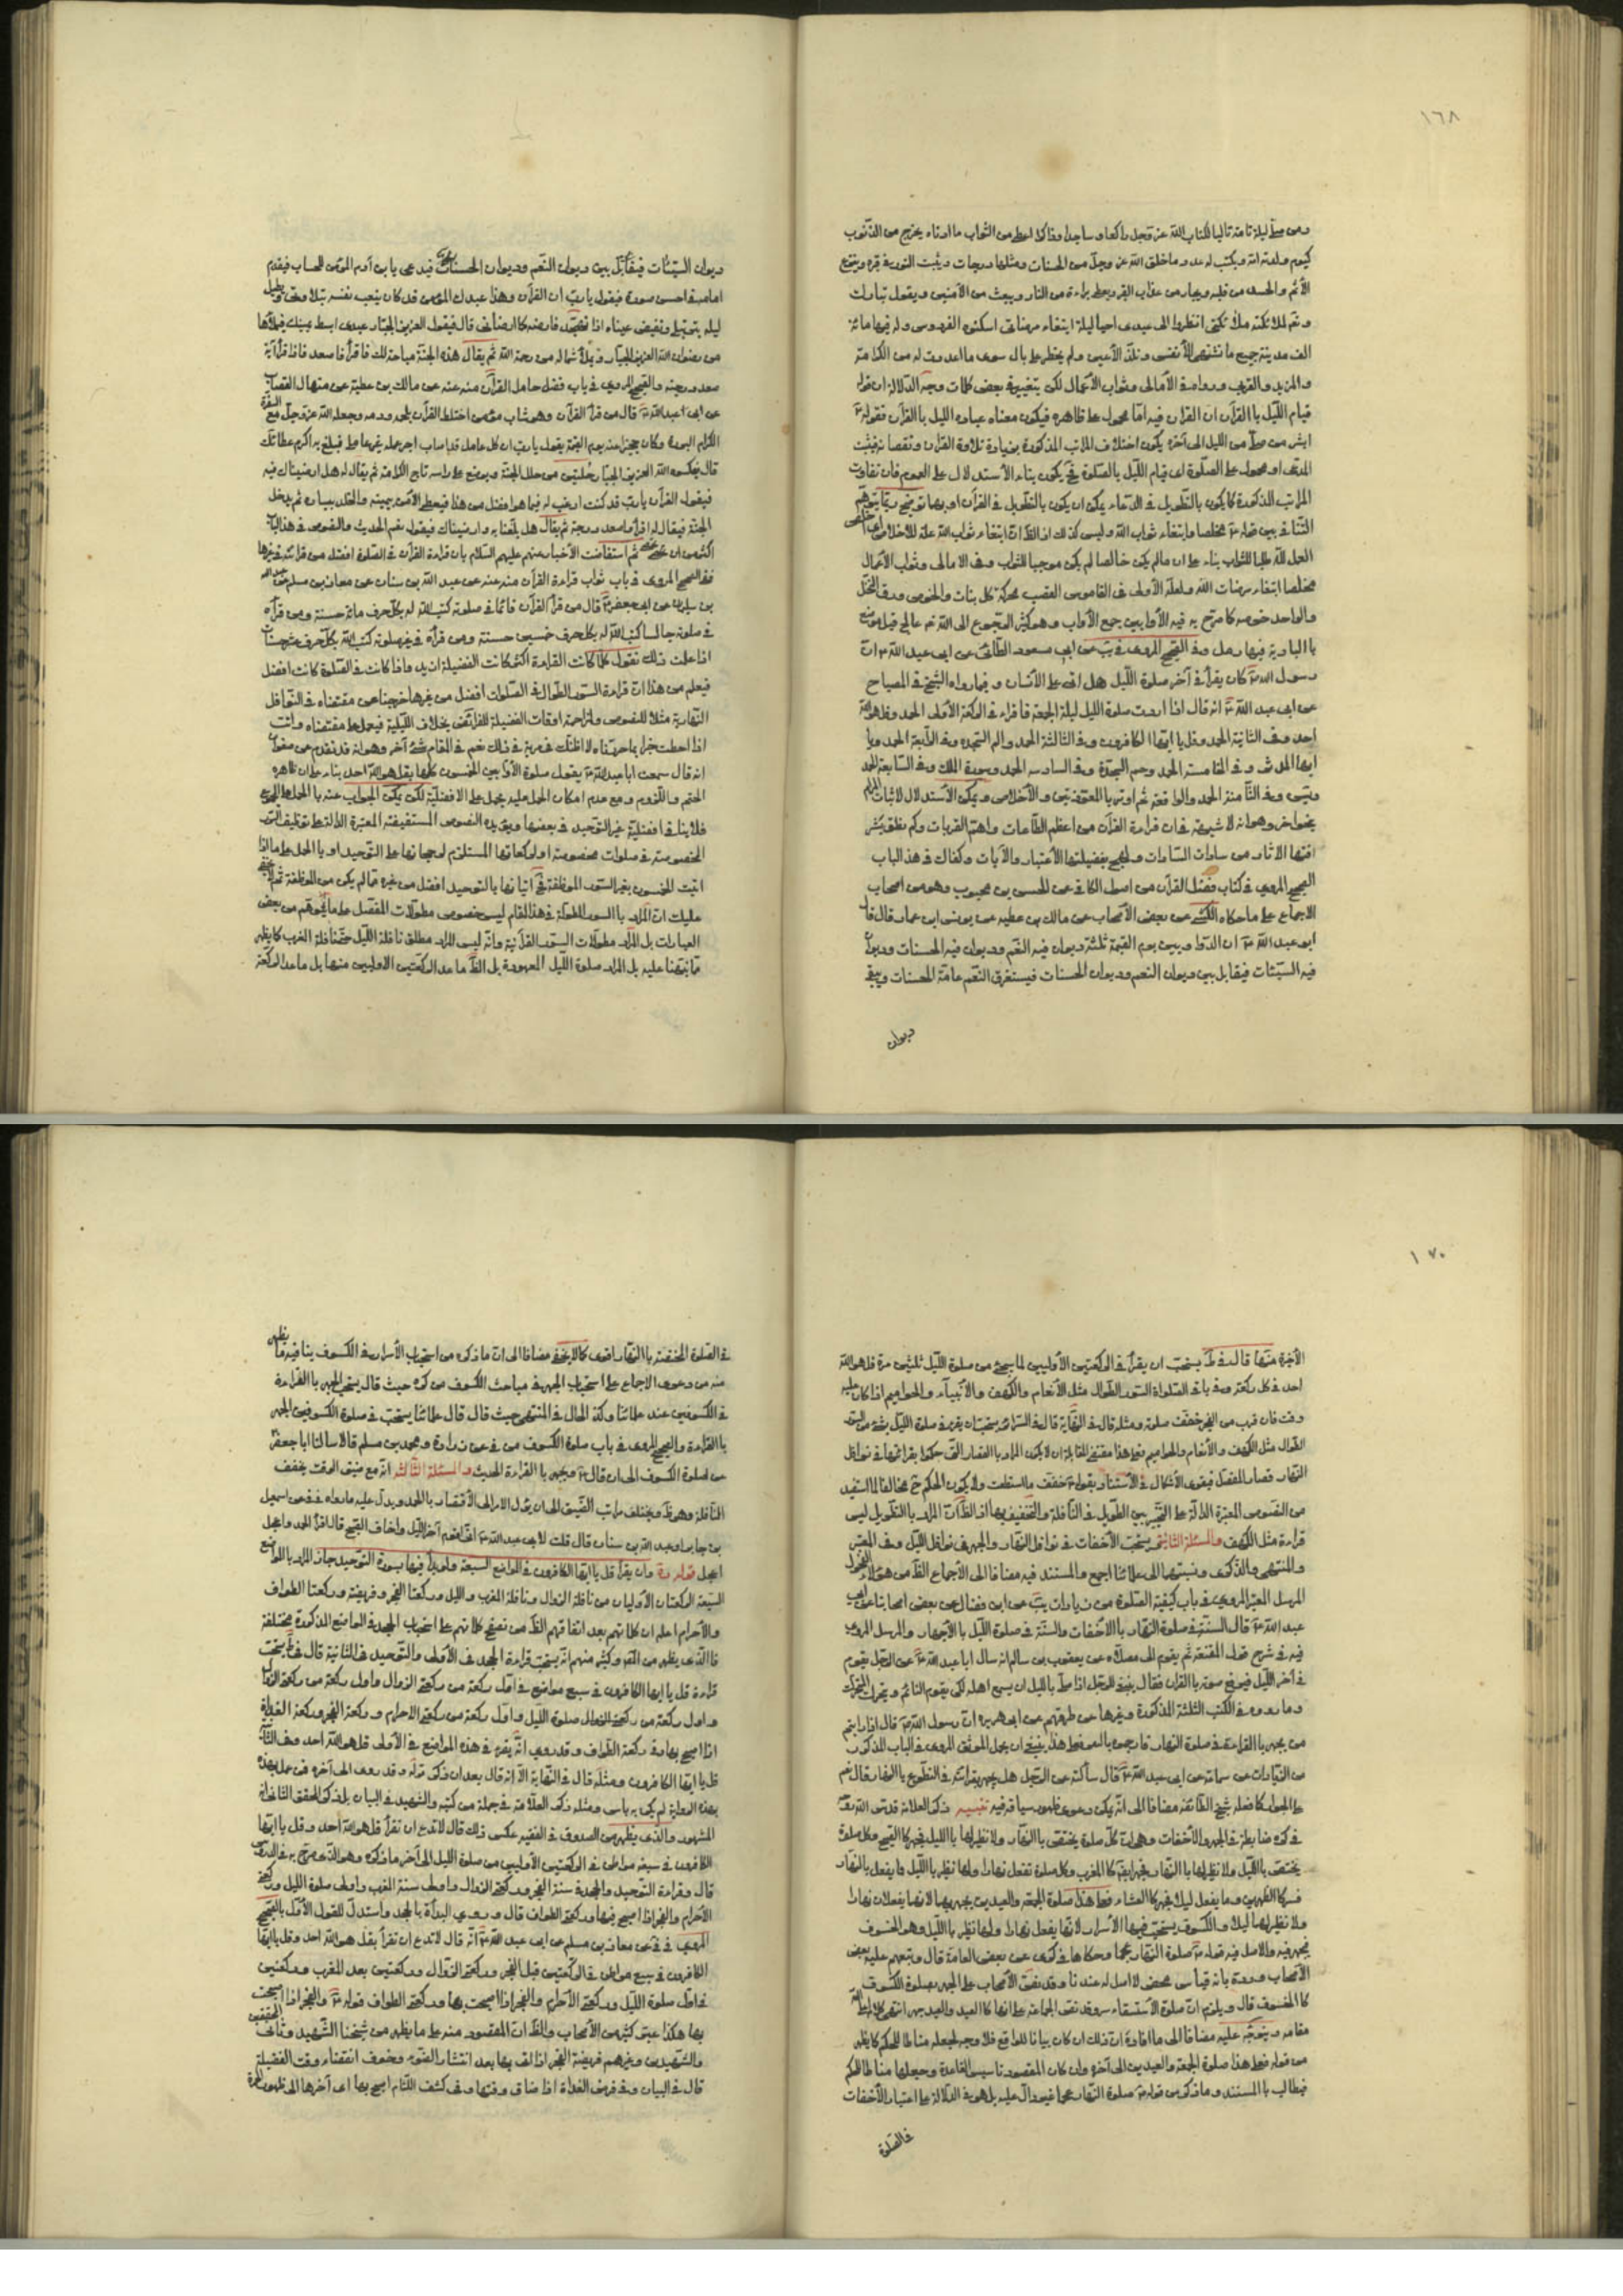 ١٦٨
ومن صلى ليلة تامة تاليا لكتاب الله عز وجل راكعا وساجدا وذاكرا اعطى من الثواب ما ادناه يخرج من الذنوب
كيوم ولدته امه ويكتب له عدد ما خلق الله عز وجل من الحسنات ومثلها درجات ويثبت النور في قبره وينزع
الأثم والحسد من قلبه ويجار من عذاب القبر ويعطى براءة من النار ويبعث من الآمنين ويقول تبارك
وتعالى لملائكته ملائكتي انظروا الى عبدى احيا ليلة ابتغاء مرضاتى اسكنوه الفردوس وله فيها مائة
الف مدينة جميع ما تشتهى الأنفس وتلذ الأعين ولم يخطر على بال سوى ما اعددت له من الكرامة
والمزيد والقربة ورواه فى الأمالى وثواب الأعمال لكن بتغيير في بعض كلمات وجه الدلالة ان قوله
قيام الليل باالقرآن ان القران فيه امّا محمول على ظاهره فيكون معناه عباده الليل باالقرآن فقوله
ابشر من صلى من الليل الى آخره يكون اختلاف المراتب المذكورة بزيادة تلاوة القرآن ونقصانه فيثبت
المدعى او محمول على الصلوة اى قيام الليل بالصلوة فح يكون بناء الأستدلال على العموم فان تفاوت
المراتب المذكورة كما يكون بالتطويل في الدعاء يمكن ان يكون بالتطويل في القرآن او بهما توضيح ربما يتوهم
التنافى بين قوله مخلصا وابتغاء ثواب الله وليس كذلك اذ الظ ان ابتغاء ثواب الله علة للاخلاص اى اخلص
العمل لله طلبا للثواب بناء على ان مالم يكن خالصا لم يكن موجبا للثواب وفى الامالى وثواب الأعمال
مخلصا ابتغاء مرضات الله ولعله الأولى في القاموس القصب محركة كل نبات والخوص ورق النخل
والواحد خوصه كما صرح به فيه الأوابين جمع الأواب وهو كثير الرجوع الى الله تع عالج قيل موضع
باالبادية فيها رمل وفى الصحيح المروى في يب عن ابى مسعود الطائى عن ابى عبد الله ان
رسول الله كان يقرأ في آخر صلوة الليل هل اتى على الأنسان وفيما رواه الشيخ في المصباح
عن ابى عبد الله انه قال اذا اردت صلوة الليل ليلة الجمعة فاقراء في الركعة الأولى الحمد وقل هو الله
احد وفى الثانية الحمد وقل يا ايها الكافرون وفى الثالثة الحمد والم السجده وفى الرابعة الحمد ويا
ايها المدثر وفى الخامسة الحمد وحم السجدة وفى السادسه الحمد وسورة الملك وفى السابعة الحمد
ويس وفى الثامنة الحمد والواقعة ثم اوتر باالمعوذتين والأخلاص ويمكن الأستدلال لاثبات المرام
بنحو اخر وهو انه لا شبهة في ان قراءة القرآن من اعظم الطاعات واهم القربات وكم نطق بنشر
افتها الآثار من سادات السادات ولهج بفضيلتها الأعتبار والآيات وكفاك في هذا الباب
الصحيح المروى في كتاب فضل القرآن من اصول الكافى عن الحسن بن محبوب وهو من اصحاب
الاجماع على ما حكاه الكشى عن بعض الأصحاب عن مالك بن عطيه عن يونس ابن عمار قال قال
ابو عبد الله ان الدواوين يوم القيمة ثلثة ديوان فيه النعم وديوان فيه الحسنات وديوان
فيه السيئات فيقابل بين ديوان النعم وديوان الحسنات فيستغرق النعم عامة الحسنات ويبقى
ديوان
ديوان السيئات فيقابل بين ديوان النعم وديوان الحسنات فيدعى يابن آدم المؤمن للحساب فيتقدم
امامه في احسن صورة فيقول يا رب ان القرآن وهذا عبدك المؤمن قد كان يتعب نفسه بتلاوتى ويطيل
ليله بترتيلى وتفيض عيناه اذا تهجد فارضه كما ارضانى قال فيقول العزيز الجبار عبدى ابسط يمينك فيملأها
من رضوان الله العزيز الجبار ويملأ شماله من رحمة الله ثم يقال هذه الجنة مباحة لك فاقرأ فاصعد فاذا قرأ آية
صعد درجة والصحيح المروى في باب فضل حامل القرآن منه عنه عن مالك بن عطية عن منهال القصاب
عن ابى عبد الله قال من قرأ القرآن وهو شاب مؤمن اختلط القرآن بلحمه ودمه وجعله الله عز وجل مع السفرة
الكرام البررة وكان حجيزا عنه يوم القيمة يقول يا رب ان كل عامل قد اصاب اجر عمله غير عاملى فبلغ به اكرم عطائك
قال فيكسوه الله العزيز الجبار حلتين من حلل الجنة ويوضع على راسه تاج الكرامة ثم يقال له هل ارضيناك فيه
فيقول القرآن يا رب قد كنت ارغب له فيما هو افضل من هذا فيعطى الأمن بيمينه والخلد بيساره ثم يدخل
الجنة فيقال له اقرأ واصعد درجة ثم يقال هل بلغنا به وارضيناك فيقول نعم الحديث والنصوص في هذا الباب
اكثر من ان تحصى ثم استفاضت الأخبار عنهم عليهم السلام بان قراءة القرآن في الصلوة افضل من قرائته في غيرها
ففى الصحيح المروى في باب ثواب قراءة القرآن منه عنه عن عبد الله بن سنان عن معاذ بن مسلم عن عبد الله
بن سليمان عن ابى جعفر قال من قرأ القرآن قائما في صلوته كتب الله له بكل حرف مائة حسنة ومن قرأه
في صلوته جالسا كتب الله له بكل حرف خمسين حسنة ومن قرأه في غير صلوته كتب الله بكل حرف عشر حسنات
اذا علمت ذلك نقول كلما كانت القراءة اكثر كانت الفضيلة ازيد واذا كانت في الصلوة كانت افضل
فيعلم من هذا ان قراءة السور الطوال في الصلوات افضل من غيرها خرجنا عن مقتضاه في النوافل
النهارية مثلا للنصوص ولمزاحمة اوقات الفضيلة للفرائض بخلاف الليلية فيعمل على مقتضاه وانت
اذا احطت خبرا بما حررناه لا اظنك في مرية في ذلك نعم في المقام شئ آخر وهو انه قد تقدم عن صفوان
انه قال سمعت ابا عبد الله يقول صلوة الأوابين الخمسون كلها بقل هو الله احد بناء على ان ظاهره
الحتم واللزوم ومع عدم امكان الحمل عليه يحمل على الافضلية لكن يمكن الجواب عنه باالحمل على
فلا ينافى افضلية غير التوحيد في بعضها ويؤيده النصوص المستفيضة المعتبرة الدالة على توظيف السور
المخصوصة في صلوات مخصوصة او لركعاتها المستلزم لرجحانها على التوحيد او باالحمل على ما اذا
اتيت الخمسون بغير السور الموظفة فح اتيانها بالتوحيد افضل من غيره مما لم يكن من الموظفة ثم لا يخفى
عليك ان المراد باالسور المطولة في هذا المقام ليس خصوص مطولات المفصل على ما يتوهم من بعض
العبارات بل المراد مطولات السور القرآنية وانه ليس المراد مطلق نافلة الليل حتى نافلة المغرب كما يظهر
مما نبهنا عليه بل المراد صلوة الليل المعهودة بل الظ ما عدا الركعتين الاوليين منها بل ما عدا الركعة
١٧٠
الأخيرة منها قال في ط يستحب ان يقرأ في الركعتين الأوليين لما يسجئ من صلوة الليل ثلثين مرة قل هو الله
احد في كل ركعة وفى باقى الصلواة السور الطوال مثل الأنعام والكهف والأنبياء والحواميم اذا كان عليه
وقت فان قرب من الفجر خفف صلوته ومثله قال في النهاية قال في السرائر يستحب ان يقرء في صلوة الليل بشئ من السور
الطوال مثل الكهف والأنعام والحواميم وعلى هذا مقتضى المقابلة ان لا يكون المراد باالقصار التى حكموا بقرائتها في نوافل
النهار قصار المفصل فيقوى الأشكال في الأستناد بقوله خفف ما استطعت ولا يكون الحكم ح مخالفا لما استفيد
من النصوص المعتبرة الدالة على التخيير بين الطويل في النافلة والتخفيف بها اذ الظ ان المراد باالتطويل ليس
قراءة مثل الكهف والمسئلة الثانية يستحب الأخفات في نوافل النهار والجهر في نوافل الليل وفى المعتبر
والمنتهى والذكرى ونسبتها الى علمائنا اجمع والمستند فيه مضافا الى الأجماع الظ من هؤلاء الفحول
المرسل المعتبر المروى في باب كيفية الصلوة من زيادات يب عن ابن فضال عن بعض اصحابنا عن ابى
عبد الله قال السنة في صلوة النهار باالأخفات والسنة في صلوة الليل باالأجهار والمرسل المروى
فيه في شرح قول المقنعة ثم يقوم الى مصلاه عن يعقوب بن سالم انه سال ابا عبد الله عن الرجل يقوم
في آخر الليل فيرفع صوته باالقران فقال ينبغى للرجل اذا صلى بالليل ان يسمع اهله لكى يقوم النائم ويتحرك المتحرك
وما روه في الكتب الثلثة المذكورة وغيرها من طرقهم عن ابى هريره ان رسول الله قال اذا رايتم
من يجهر باالقراءة في صلوة النهار فارجموه باالبعر وعلى هذا ينبغى ان يحمل الموثق المروى في الباب المذكور
من الزيادات عن سماعة عن ابى عبد الله قال سألته عن الرجل هل يجهر بقرائته في التطوع باالنهار قال نعم
على الجواز كما فعله شيخ الطائفة مضافا الى انه يمكن دعوى ظهور سياقه فيه تنبيه ذكر العلامة قدس الله روحه
في كره ضابطة في الجهر والأخفات وهو ان كل صلوة يختص باالنهار ولا نظير لها باالليل فيجهر كاالصبح وكل صلوة
يختص باالليل ولا نظير لها باالنهار فيجهر ايض كاالمغرب وكل صلوة تفعل نهارا ولها نظير باالليل فما يفعل باالنهار
فسرا كاالظهرين وما يفعل ليلا فجهرا كا العشاء فعلى هذا صلوة الجمعة والعيدين يجهر بهما لانهما يفعلان نهارا
ولا نظير لهما ليلا والكسوف يستحب فيها الأسرار لانها يفعل نهارا ولها نظير باالليل وهو الخسوف
يجهر فيه والاصل فيه قوله صلوة النهار عجما وحكاها في كرى عن بعض العامة قال وتبعهم عليه بعض
الأصحاب ورده بانه قياس محض لا اصل له عندنا وقد نص الأصحاب على الجهر بصلوة الكسوف
كا الخسوف قال ويلزم ان صلوة الأستسقاء سر وقد نص الجماعة على انها كا العيد والعيد جهر انتهى كلامه
مقامه ويتوجه عليه مضافا الى ما افاده ان ذلك ان كان بيانا للواقع فلا وجه لجعله مناطا للحكم كما يظهر
من قوله فعلى هذا صلوة الجمعة والعيدين الى آخره وان كان المقصود تاسيس القاعدة وجعلها مناطا للحكم
فيطالب باالمستند وما ذكر من قوله صلوة النهار عجما غير دال عليه بل هو في الدلالة على اعتبار الأخفات
في الصلوة
في الصلوة المختصة باالنهار اقوى كما لا يخفى مضافا الى ان ما ذكره من استحباب الأسرار في الكسوف ينافيه ما يظهر
منه من دعوى الاجماع على استحباب الجهر في مباحث الكسوف من كره حيث قال يستحب الجهر باالقراءة
في الكسوفين عند علمائنا وكذا الحال في المنتهى حيث قال قال علمائنا يستحب في صلوة الكسوفين الجهر
باالقراءة والصحيح المروى في باب صلوة الكسوف من في عن زرارة ومحمد بن مسلم قالا سالنا ابا جعفر
عن صلوة الكسوف الى ان قال ويجهر باالقراءة الحديث والمسئلة الثالثة انه مع ضيق الوقت يخفف
النافلة وهو ظ ويختلف مراتب الضيق الى ان يؤل الامر الى الأقتصار باالحمد ويدل عليه ما رواه في في عن اسمعيل
بن جابر او عبد الله بن سنان قال قلت لابى عبد الله انى اقوم آخر الليل واخاف الصبح قال اقرأ الحمد واعجل
اعجل قوله ره وان يقرأ قل يا ايها الكافرون في المواضع السبعة ولو بدأ فيها بسورة التوحيد جاز المراد باالمواضع
السبعة الركعتان الأوليان من نافلة الزوال ونافلة المغرب والليل وركعتا الفجر وفريضة وركعتا الطواف
والأحرام اعلم ان كلماتهم بعد اتفاقهم الظ من تصفح كلماتهم على استحباب الجحد في المواضع المذكورة مختلفة
فاالذى يظهر من المص وكثير منهم انه يستحب قراءة الجحد في الأولى والتوحيد في الثانية قال في ط يستحب
قراءة قل يا ايها الكافرون في سبع مواضع في اول ركعة من ركعتى الزوال واول ركعة من ركعتى نوافل
واول ركعة من ركعتى صلوة الليل واول ركعة من ركعتى الاحرام وركعتى الفجر وركعتى الغداة
اذا اصبح بها وفى ركعتى الطواف وقد روى انه يقرء في هذه المواضع في الأولى قل هو الله احد وفى الثانية
قل يا ايها الكافرون ومثله قال في النهاية الا انه قال بعد ان ذكر قوله وقد روى الى آخره فمن عمل بهذه
بهذه الرواية لم يكن به باس ومثله ذكر العلامة في جملة من كتبه والشهيد في البيان بل ذكر المحقق الثانى انه
المشهور والذى يظهر من الصدوق في الفقيه عكس ذلك قال لا تدع ان تقرأ قل هو الله احد وقل يا ايها
الكافرون في سبعه مواطن في الركعتين الأوليين من صلوة الليل الى آخر ما ذكره وهو الذى صرح به في الدروس
قال وقراءة التوحيد والجحد في سنة الفجر وركعتى الزوال واولى سنة المغرب واولى صلوة الليل وركعتى
الأحرام والفجر اذا اصبح فيها وركعتى الطواف قال وروى البدأة باالجحد واستدل للقول الأول بالصحيح
المروى في في عن معاذ بن مسلم عن ابى عبد الله انه قال لا تدع ان تقرأ بقل هو الله احد وقل يا ايها
الكافرون في سبع مواطن في الركعتين قبل الفجر وركعتى الزوال وركعتين بعد المغرب وركعتين
في اول صلوة الليل وركعتى الأحرام والفجر اذا اصبحت بها وركعتى الطواف قوله والفجر اذا اصبحت
بها هكذا عبر كثير من الأصحاب والظ ان المقصود منه على ما يظهر من شيخنا الشهيد وثانى المحققين
والشهيدين وغيرهم فريضة الفجر اذا اتى بها بعد انتشار الضوء وخوف انقضاء وقت الفضيلة
قال في البيان وفى فرض الغداة اذا ضاق وقتها وفى كشف اللثام اصبح بها اى آخرها الى ظهور الحمرة